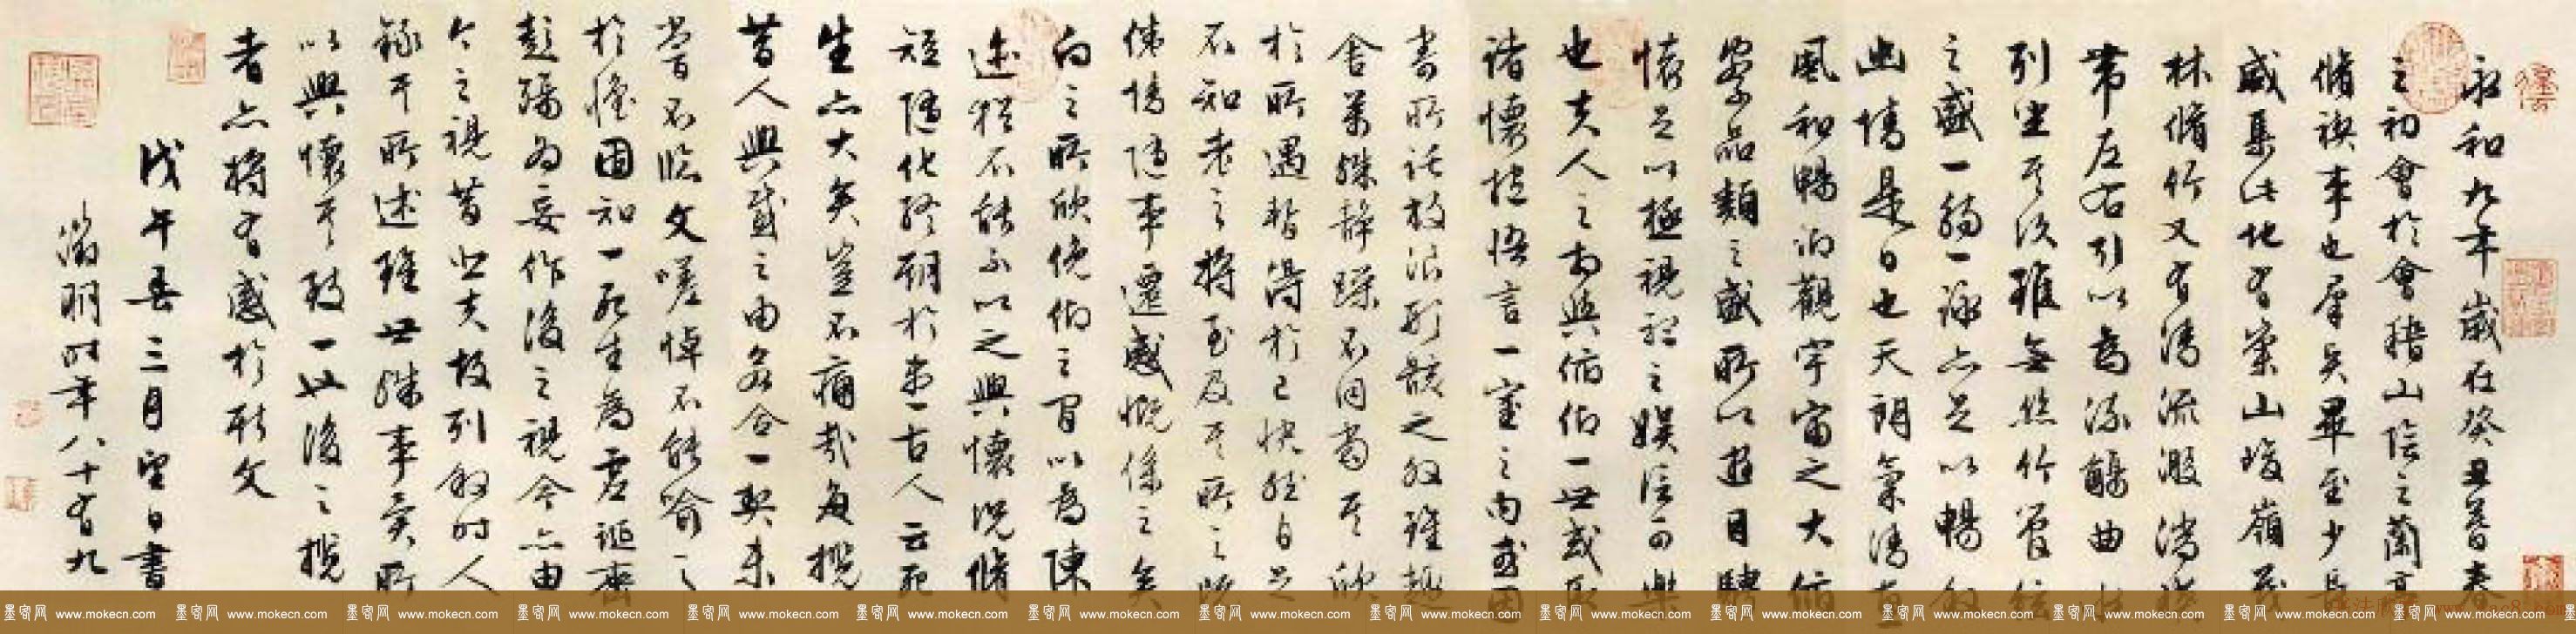 永和九年歲在癸丑暮春
之初會於會稽山陰之蘭亭
脩禊事也羣賢畢至少長
咸集此地有崇山峻嶺茂
林脩竹又有清流激湍映
帶左右引以為流觴曲水
列坐其次雖無絲竹管弦
之盛一觴一詠亦足以暢敘
幽情是日也天朗氣清惠
風和暢仰觀宇宙之大俯
察品類之盛所以遊目騁
懷足以極視聽之娛信可樂
也夫人之相與俯仰一世或取
諸懷抱悟言一室之內或因
寄所託放浪形骸之外雖趣
舍萬殊靜躁不同當其欣
於所遇暫得於己快然自足
不知老之將至及其所之既
倦情隨事遷感慨係之矣
向之所欣俛仰之間以為陳
迹猶不能不以之興懷況脩
短隨化終期於盡古人云死
生亦大矣豈不痛哉每攬
昔人興感之由若合一契未
嘗不臨文嗟悼不能喻之
於懷固知一死生為虛誕齊
彭殤為妄作後之視今亦由
今之視昔悲夫故列敘時人
錄其所述雖世殊事異所
以興懷其致一也後之攬
者亦將有感於斯文
戊午春三月望日書
徵明時年八十有九
墨客网 www.mokecn.com